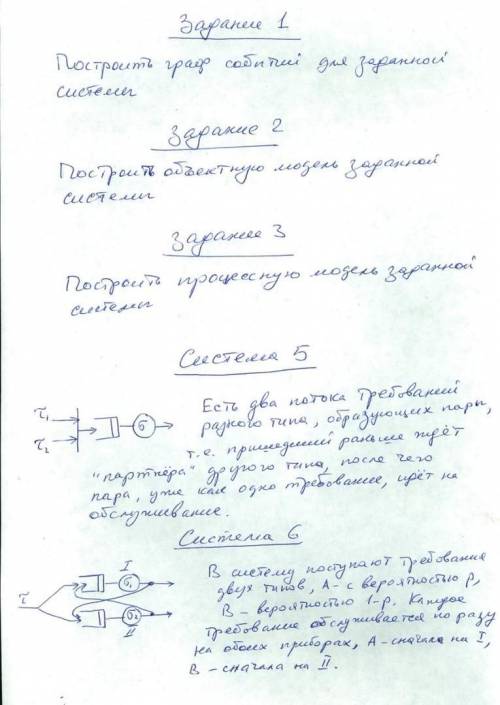 Задание 1
Построить граф событий для заданной
системы
Задание 2
Построить объектную модель заданной
системы
Задание 3
Построить процессную модель заданной
системы
Система 5
τ₁
τ₂
σ
Есть два потока требований
разного типа, образующих пары,
т.е. пришедший раньше ждёт
"партнёра" другого типа, после чего
пара, уже как одно требование, идёт на
обслуживание.
Система 6
τ
I
σ₁
σ₂
II
В систему поступают требования
двух типов, A - с вероятностью p,
B - вероятностью 1-p. Каждое
требование обслуживается по разу
на обоих приборах, A - сначала на I,
B - сначала на II.